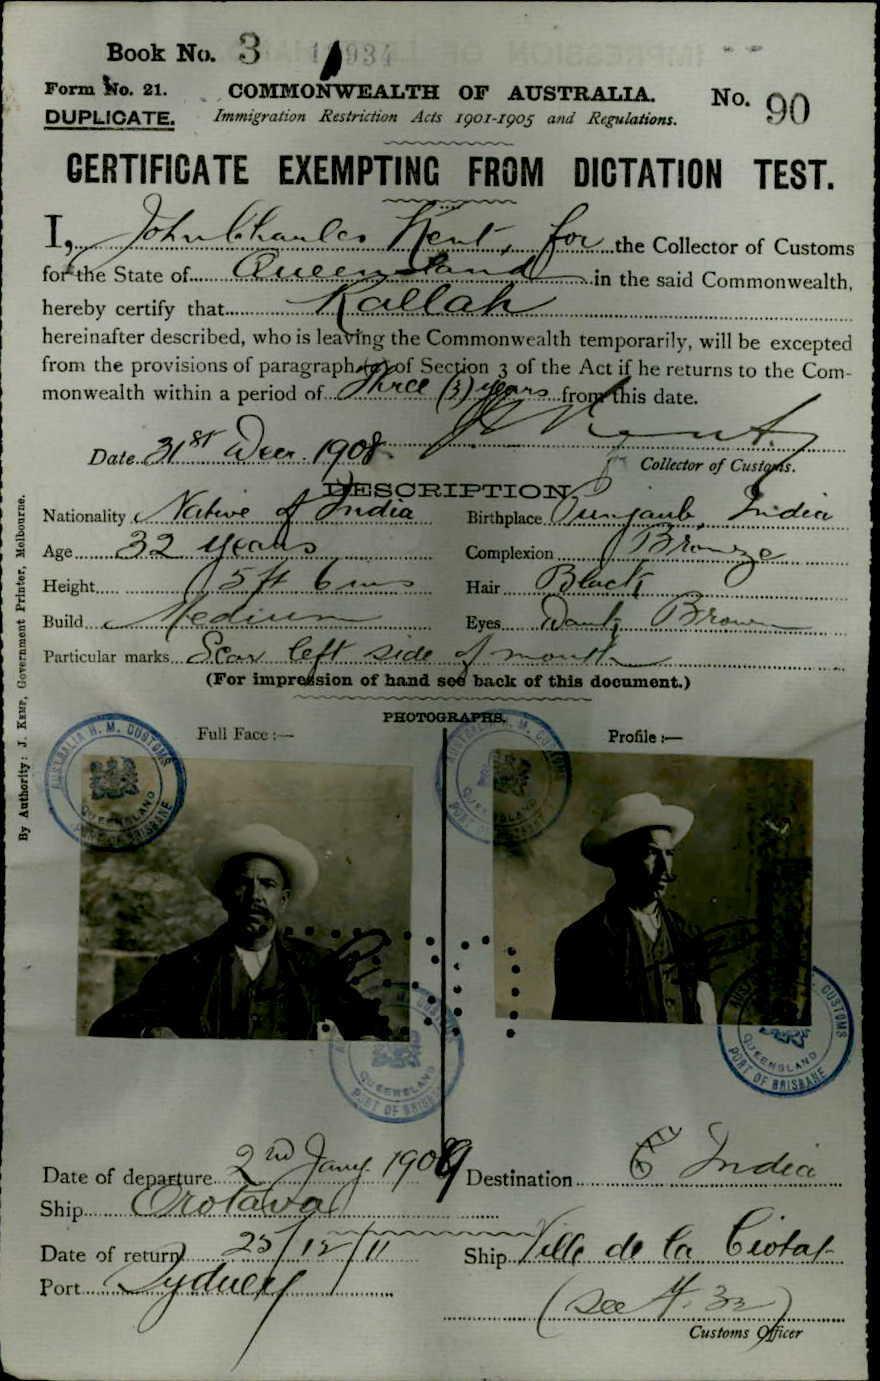 Book No. 3
Form No. 21. COMMONWEALTH OF AUSTRALIA. No. 90
DUPLICATE. Immigration Restriction Acts 1901-1905 and Regulations.
CERTIFICATE EXEMPTING FROM DICTATION TEST.
I, John Charles Kent, for the Collector of Customs
for the State of Queensland in the said Commonwealth,
hereby certify that Kallah
hereinafter described, who is leaving the Commonwealth temporarily, will be excepted
from the provisions of paragraph (a) of Section 3 of the Act if he returns to the Com-
monwealth within a period of three (3) years from this date.
J C Kent
Date 31st Decr. 1908. Collector of Customs.
DESCRIPTION
Nationality Native of India Birthplace Punjaub, India
Age 32 years Complexion Bronze
Height 5 ft 6 ins Hair Black
Build Medium Eyes Dark Brown
Particular marks Scar left side of mouth
(For impression of hand see back of this document.)
PHOTOGRAPHS.
Full Face :— Profile :—
AUSTRALIA H. M. CUSTOMS QUEENSLAND PORT OF BRISBANE
Date of departure 2nd Jany 1909 Destination India
Ship Orotava
Date of return 25/12/11 Ship Ville de la Ciotat
Port Sydney
(see
Customs Officer
By Authority: J. KEMP, Government Printer, Melbourne.